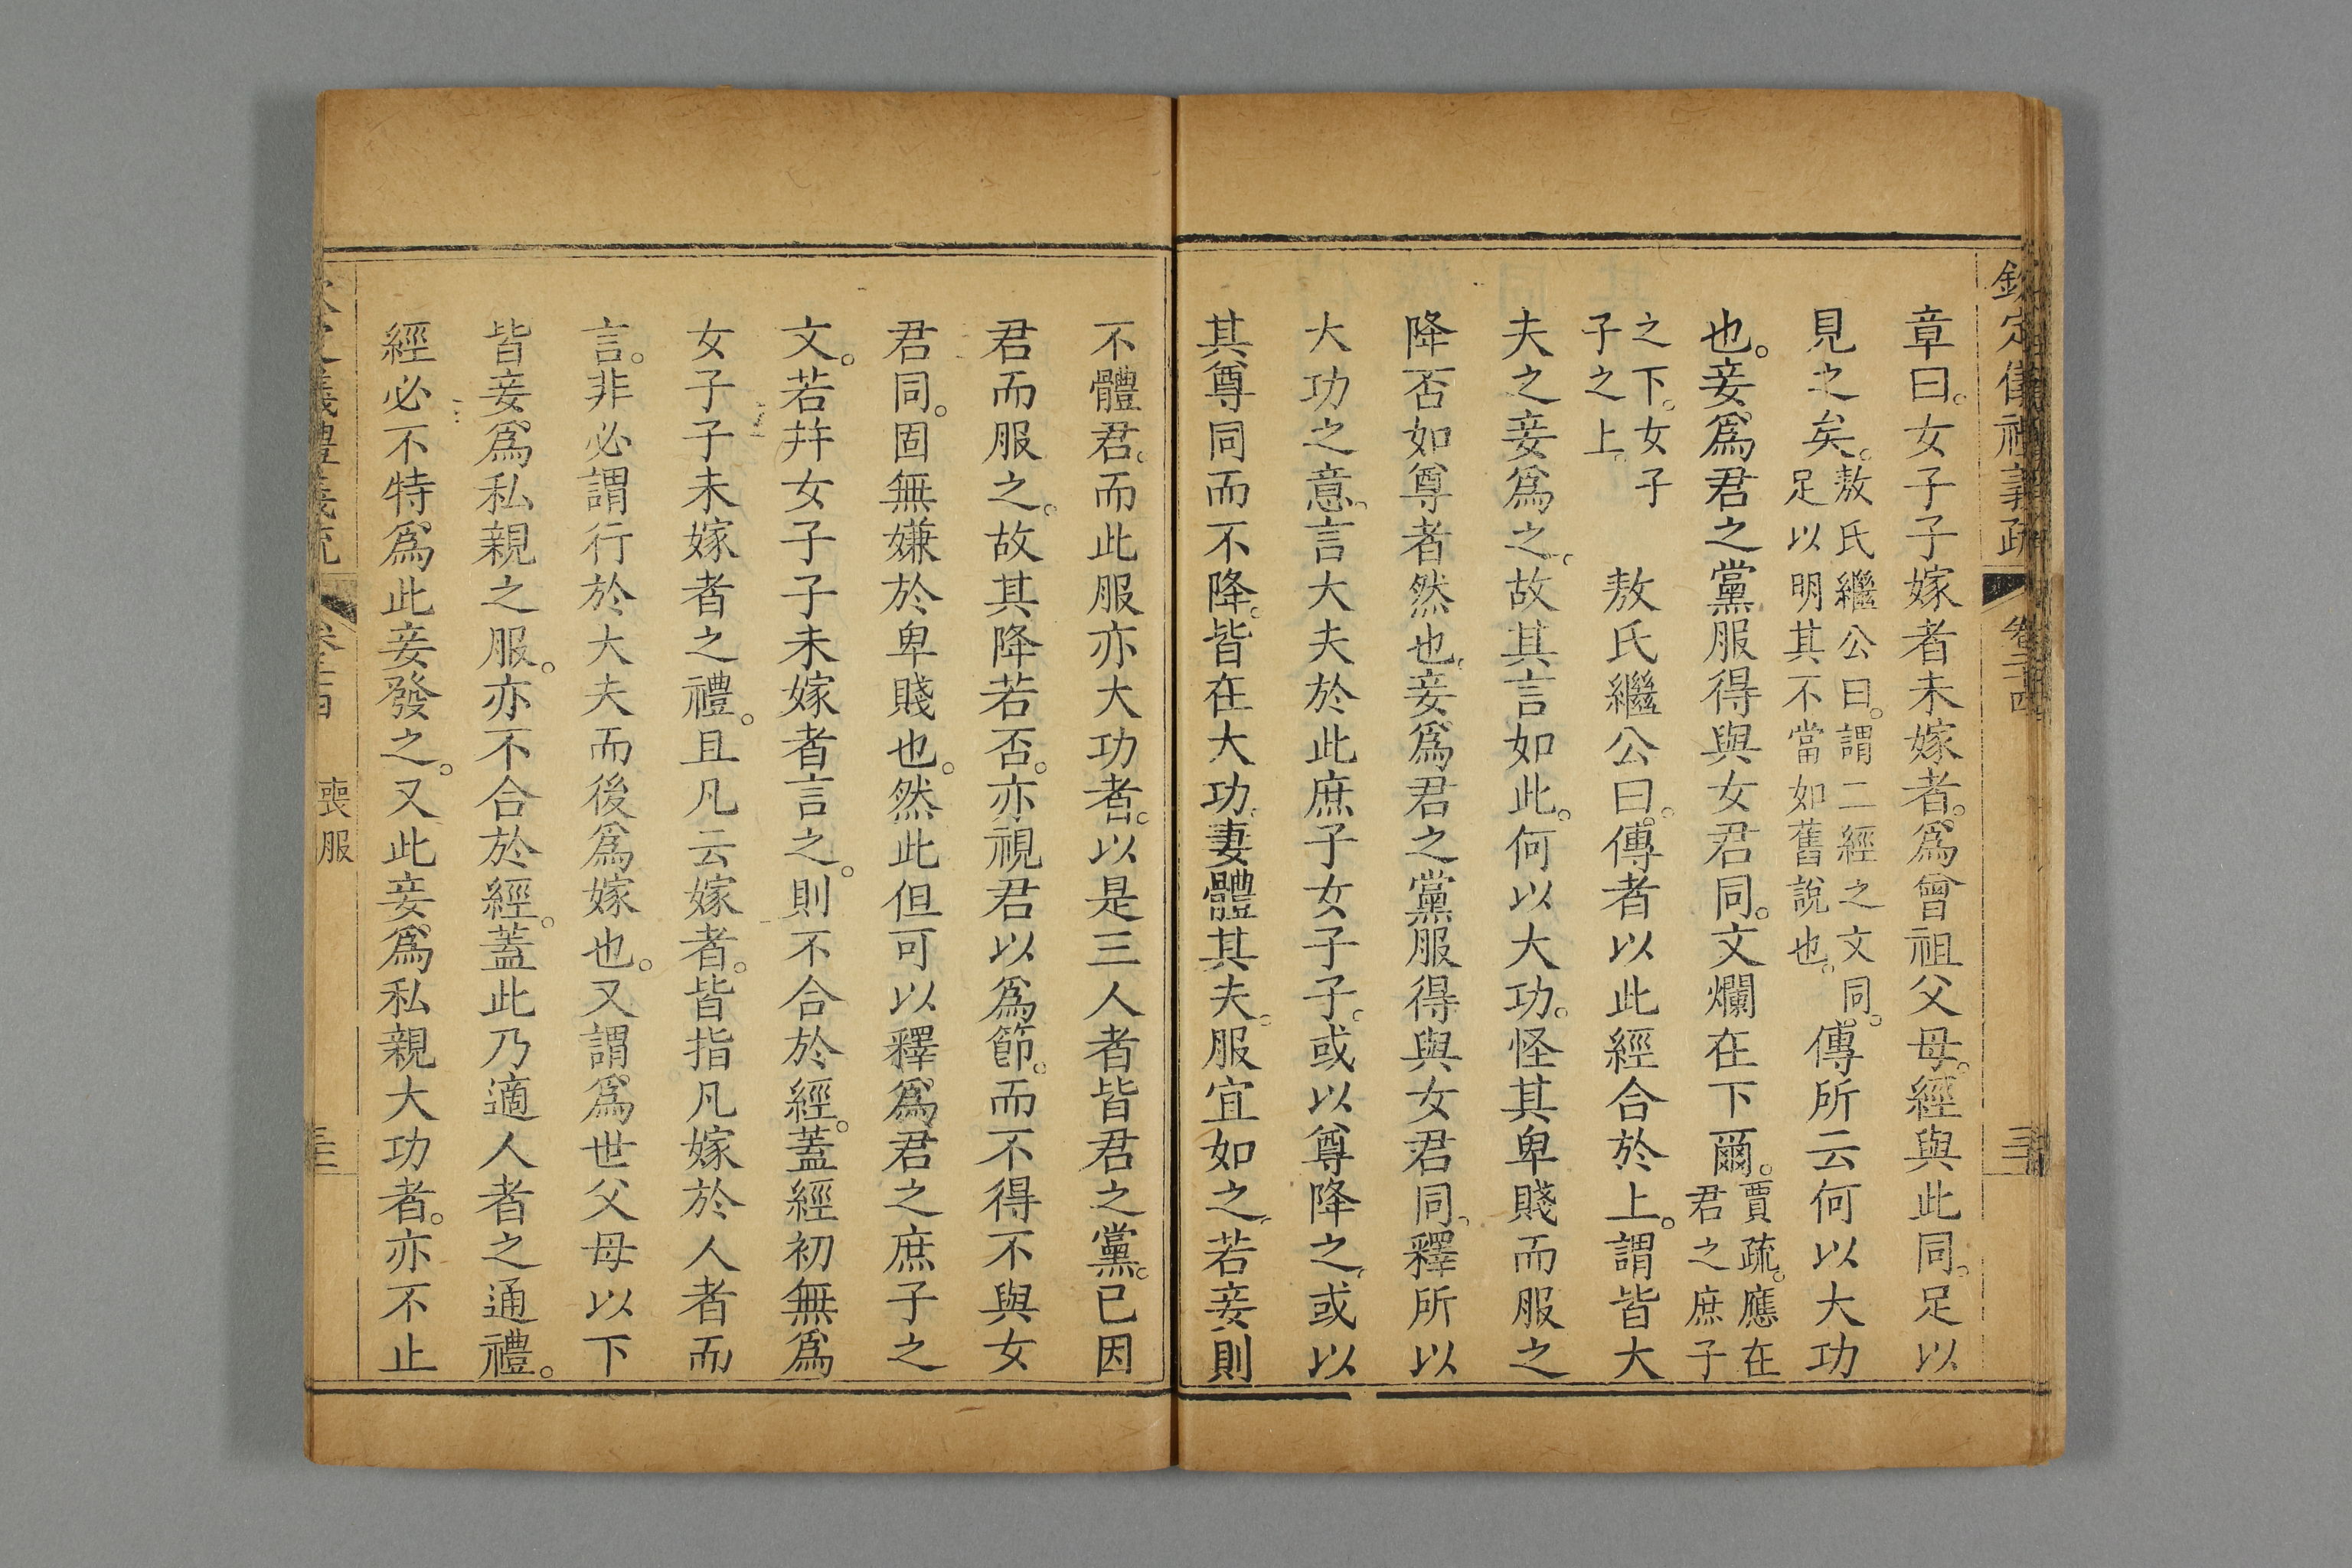 欽定儀禮義疏 卷二十四
章曰。女子子嫁者未嫁者。爲曾祖父母。經與此同。足以
見之矣。敖氏繼公曰。謂二經之文同。足以明其不當如舊說也。傳所云何以大功
也。妾爲君之黨服得與女君同。文爛在下爾。賈疏。應在君之庶子
之下。女子子之上。 敖氏繼公曰。傳者以此經合於上。謂皆大
夫之妾爲之。故其言如此。何以大功。怪其卑賤而服之
降否如尊者然也。妾爲君之黨服得與女君同。釋所以
大功之意。言大夫於此庶子女子子。或以尊降之。或以
其尊同而不降。皆在大功。妻體其夫。服宜如之。若妾則
不體君。而此服亦大功者。以是三人者皆君之黨。已因
君而服之。故其降若否。亦視君以爲節。而不得不與女
君同。固無嫌於卑賤也。然此但可以釋爲君之庶子之
文。若幷女子子未嫁者言之。則不合於經。蓋經初無爲
女子子未嫁者之禮。且凡云嫁者。皆指凡嫁於人者而
言。非必謂行於大夫而後爲嫁也。又謂爲世父母以下
皆妾爲私親之服。亦不合於經。蓋此乃適人者之通禮。
經必不特爲此妾發之。又此妾爲私親大功者。亦不止
喪服